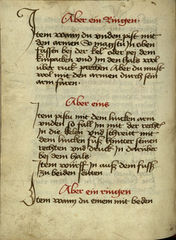 Aber ein Ringen
Item wann du unden pist mit
den armen So magstu in oben
fassen bey der kel oder pey dem
knpacken und im den hals wol
uber ruck prechen Aber du must
wol mit den armen durch sein
arm faren
Aber eins
Item pistu mit dem lincken arm
unden so fall im mit der recht
in die kelen und schreit mit
dem lincken fuß hinter seinen
rechten und druck in
bey dem hals
Item in auß dem fuß
zu beiden seitten
Aber ein ringen
Item wann du einem mit beden